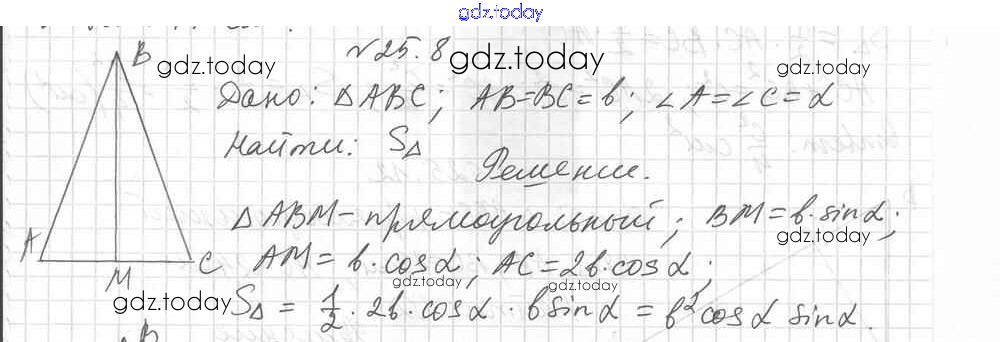 gdz.today
№25.8
gdz.today
gdz.today
B
Дано: △ABC; AB=BC=b; ∠A=∠C=α
gdz.today
Найти: S△
Решение.
△ABM-прямоугольный; BM=b·sinα;
gdz.today
A
M
C
AM=b·cosα; AC=2b·cosα;
gdz.today
gdz.today
gdz.today
S△ = 1/2·2b·cosα·b sinα = b² cosα sinα.
B